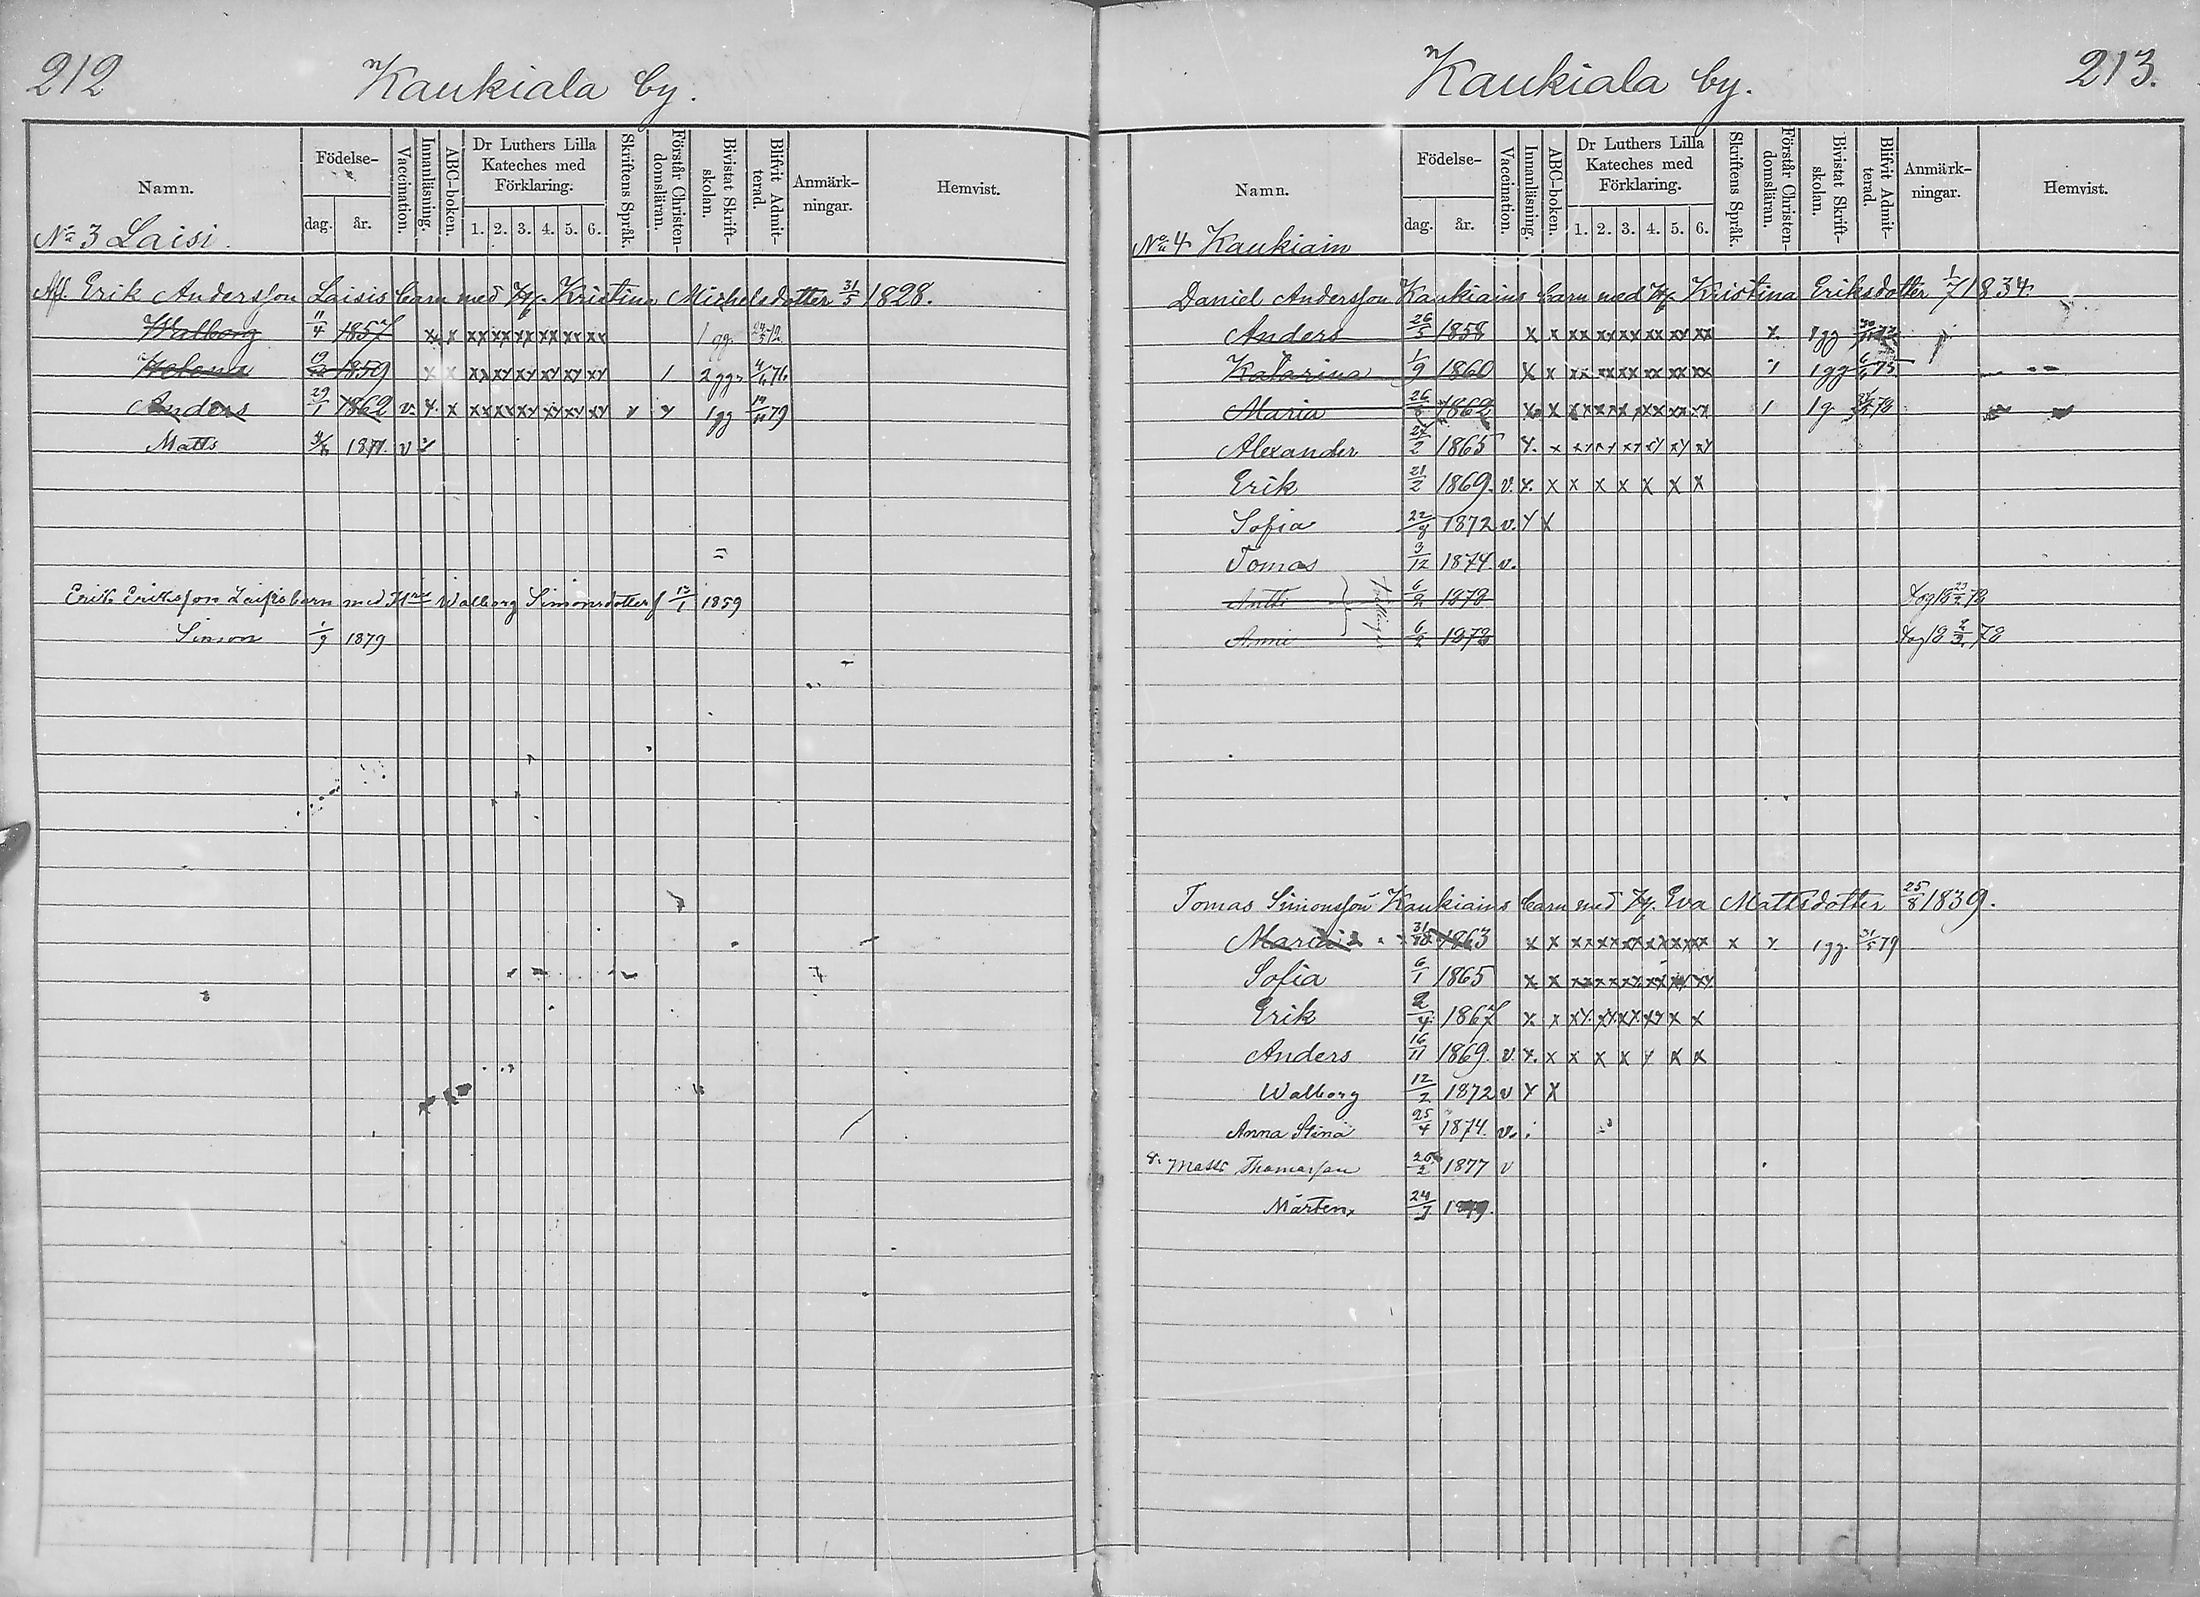 212
Kaukiala by.
Namn.
Födelse-
dag. år.
Vaccination.
Innanläsning.
ABC-boken.
Dr Luthers Lilla Kateches med Förklaring.
1. 2. 3. 4. 5. 6.
Skriftens Språk.
Förstår Christen-domsläran.
Bivistat Skrift-skolan.
Blifvit Admit-terad.
Anmärk-ningar.
Hemvist.
No 3 Laisi.
Afl. Erik Andersson Laisis barn med Hu. Kristina Michelsdotter 31/5 1828.
Walborg 11/4 1857 x x xx xx xx xx xx xx 1 gg.
Helena 1859 x x xx xx xx xx xx xx 1 2 gg. 4/6 76
Anders 29/1 1862 v. x. x xx xx xx xx xx xx x x 1 gg 79
Matts 1871. v x
Erik Eriksson Laisis barn med Walborg Simonsdotter 1859
Simon 1/9 1879
213.
Kaukiala by.
Namn.
Födelse-
dag. år.
Vaccination.
Innanläsning.
ABC-boken.
Dr Luthers Lilla Kateches med Förklaring.
1. 2. 3. 4. 5. 6.
Skriftens Språk.
Förstår Christen-domsläran.
Bivistat Skrift-skolan.
Blifvit Admit-terad.
Anmärk-ningar.
Hemvist.
No 4 Kaukiain
Daniel Andersson Kaukiains barn med Hu. Kristina Eriksdotter 1/7 1834.
Anders 26/5 1858 x x xx xx xx xx xx xx x 1 gg
Katarina 1/9 1860 x x xx xx xx xx xx xx 1 gg
Maria 1862 x x xx xx xx xx xx 1 1 g. 78
Alexander 27/2 1865 x. x xx xx xx xx xx xx
Erik 21/2 1869. v. x. x x x x x x x
Sofia 22/9 1872 v. x x
Tomas 3/12 1874 v.
Antti 6/2 1878
Anni 6/2 1878
Tomas Simonsson Kaukiains barn med Hu. Eva Mattsdotter 25/8 1839.
Maria 31/8 1863 x x xx xx xx xx xx xx x x 1 gg. 31/5 79
Sofia 6/1 1865 x x xx xx xx xx xx xx
Erik 2/4 1867 x. x xx. xx. xx. xx x x
Anders 16/11 1869. v. x. x x x x x x x
Walborg 12/2 1872 v x x
Anna Stina 25/4 1874. v.
Matts Thomasson 26/2 1877 v
Mårten